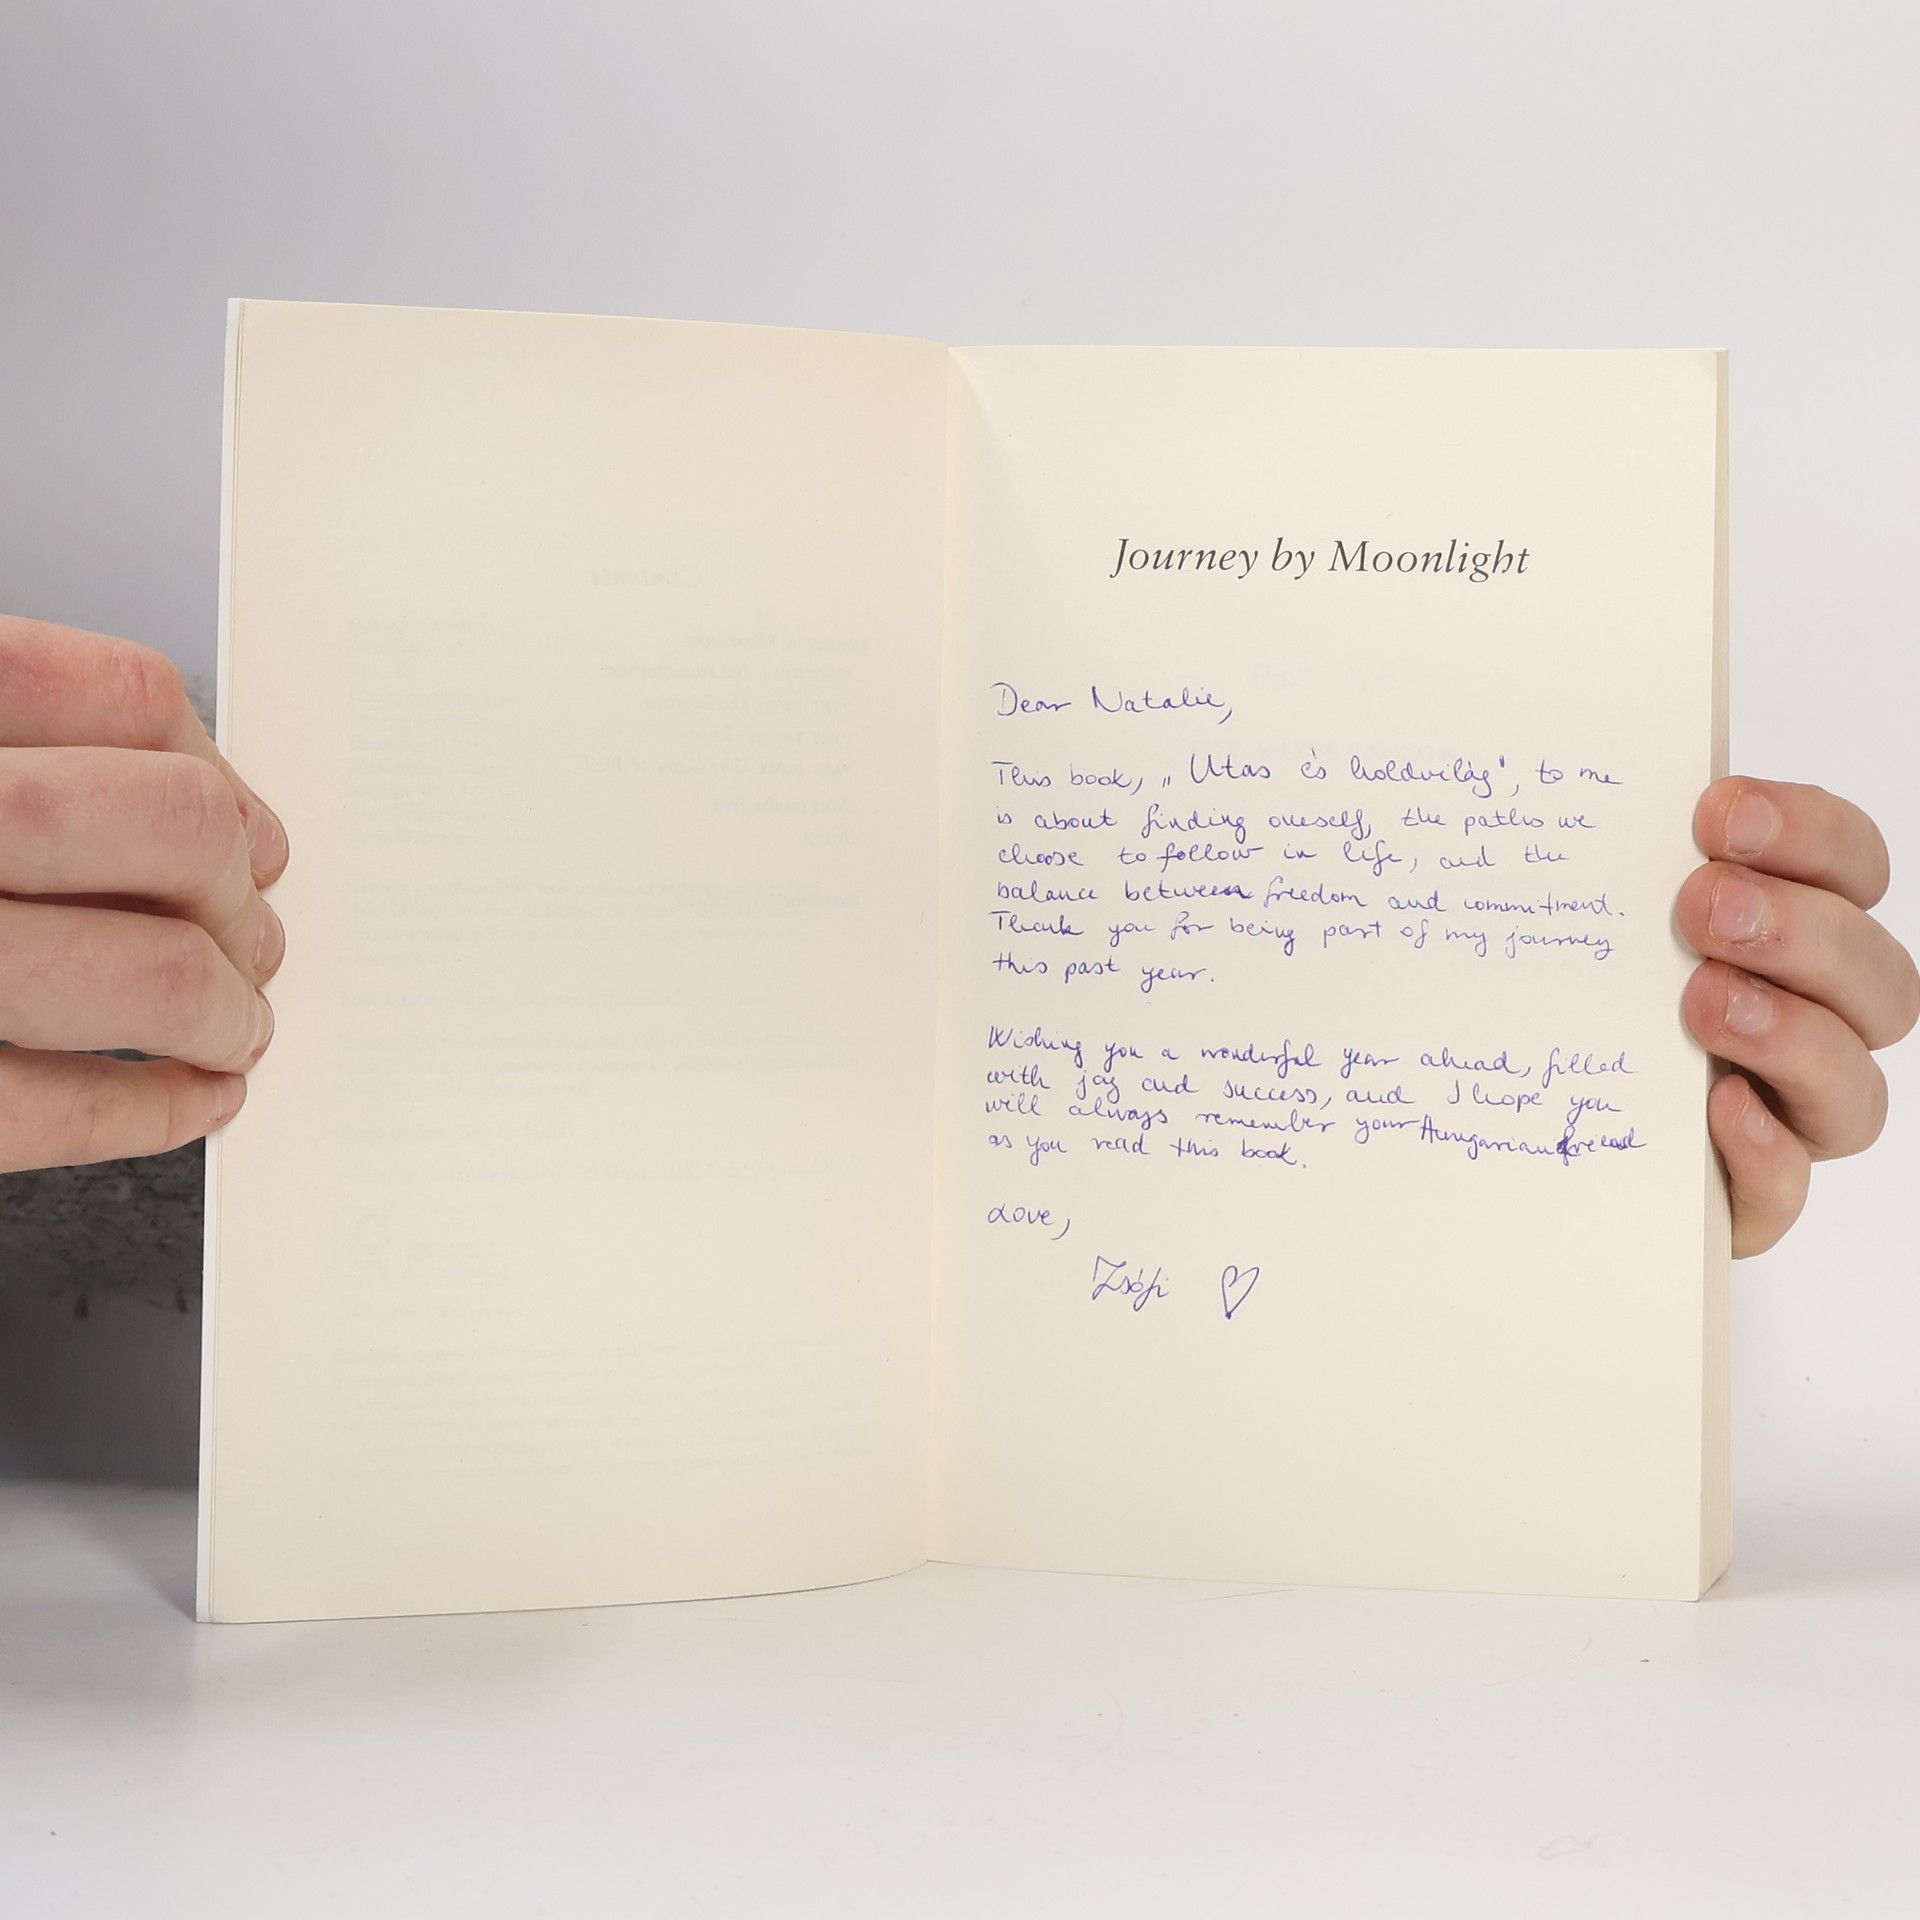 Journey by Moonlight
Dear Natalie,
This book, „Utas és holdvilág", to me
is about finding oneself, the paths we
choose to follow in life, and the
balance between freedom and commitment.
Thank you for being part of my journey
this past year.
Wishing you a wonderful year ahead, filled
with joy and success, and I hope you
will always remember your Hungarian friend
as you read this book.
Love,
Zsófi ♡